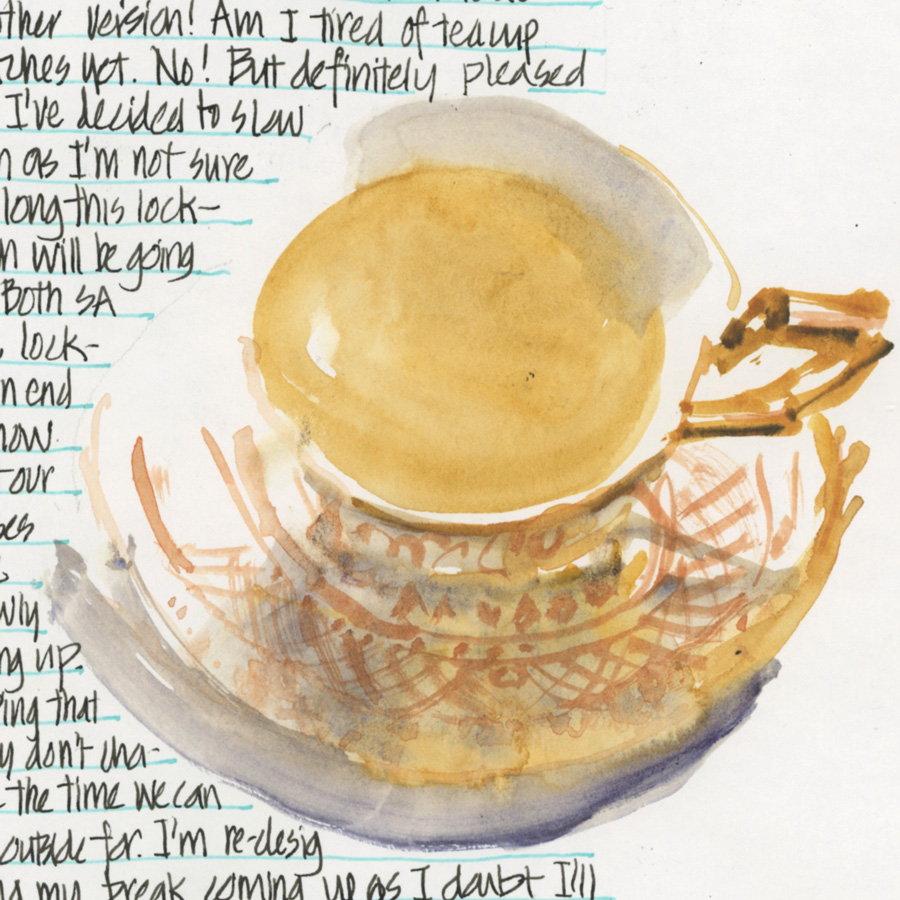 other version! Am I tired of teacup
ches yet. No! But definitely pleased
I've decided to slow
n as I'm not sure
long this lock-
n will be going
Both SA
lock-
n end
now.
our
es
wly
ng up.
ping that
y don't cha-
the time we can
outside for. I'm re-desig
my break coming up as I doubt I'll